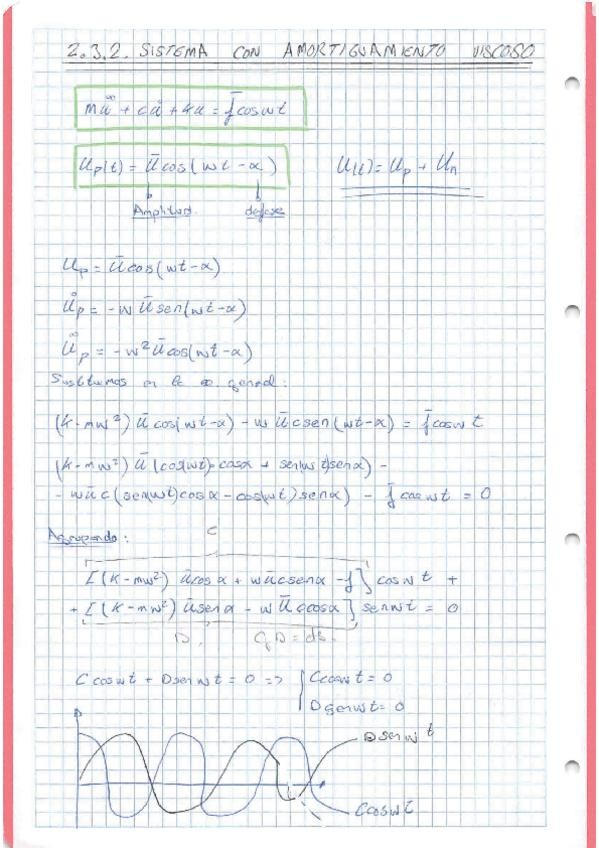 2.3.2. SISTEMA CON AMORTIGUAMIENTO VISCOSO
mü + cu̇ + ku = f̄ coswt
Up(t) = ū cos(wt - α)    U(t) = Up + Un
Amplitud. desfase
Up = ū cos(wt - α)
u̇p = -w ū sen(wt - α)
üp = -w² ū cos(wt - α)
Sustituimos en la ec. general:
(k - mw²) ū cos(wt - α) - w ū c sen(wt - α) = f̄ cosw t
(k - mw²) ū (cos(wt)·cosα + sen(wt)senα) -
- w ū c (sen(wt)cosα - cos(wt)senα) - f̄ coswt = 0
Agrupando:
C
[(K - mw²) ū cosα + w ū c senα - f] cosw t +
+ [(K - mw²) ū senα - w ū c cosα] senwt = 0
D. C, D = cts.
C coswt + D senwt = 0 => { C coswt = 0
D senwt = 0
D senw t
C coswt